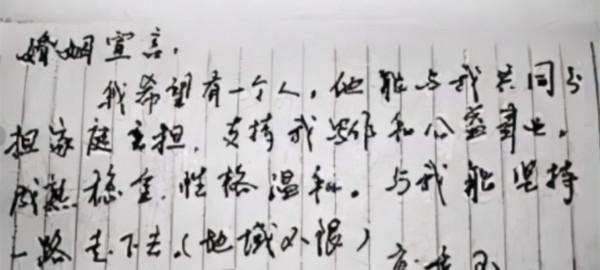 婚姻宣言。
我希望有一个人,他能与我共同分
担家庭重担,支持我写作和公益事业。
成熟稳重,性格温和。与我能坚持
一路走下去。(地域不限)